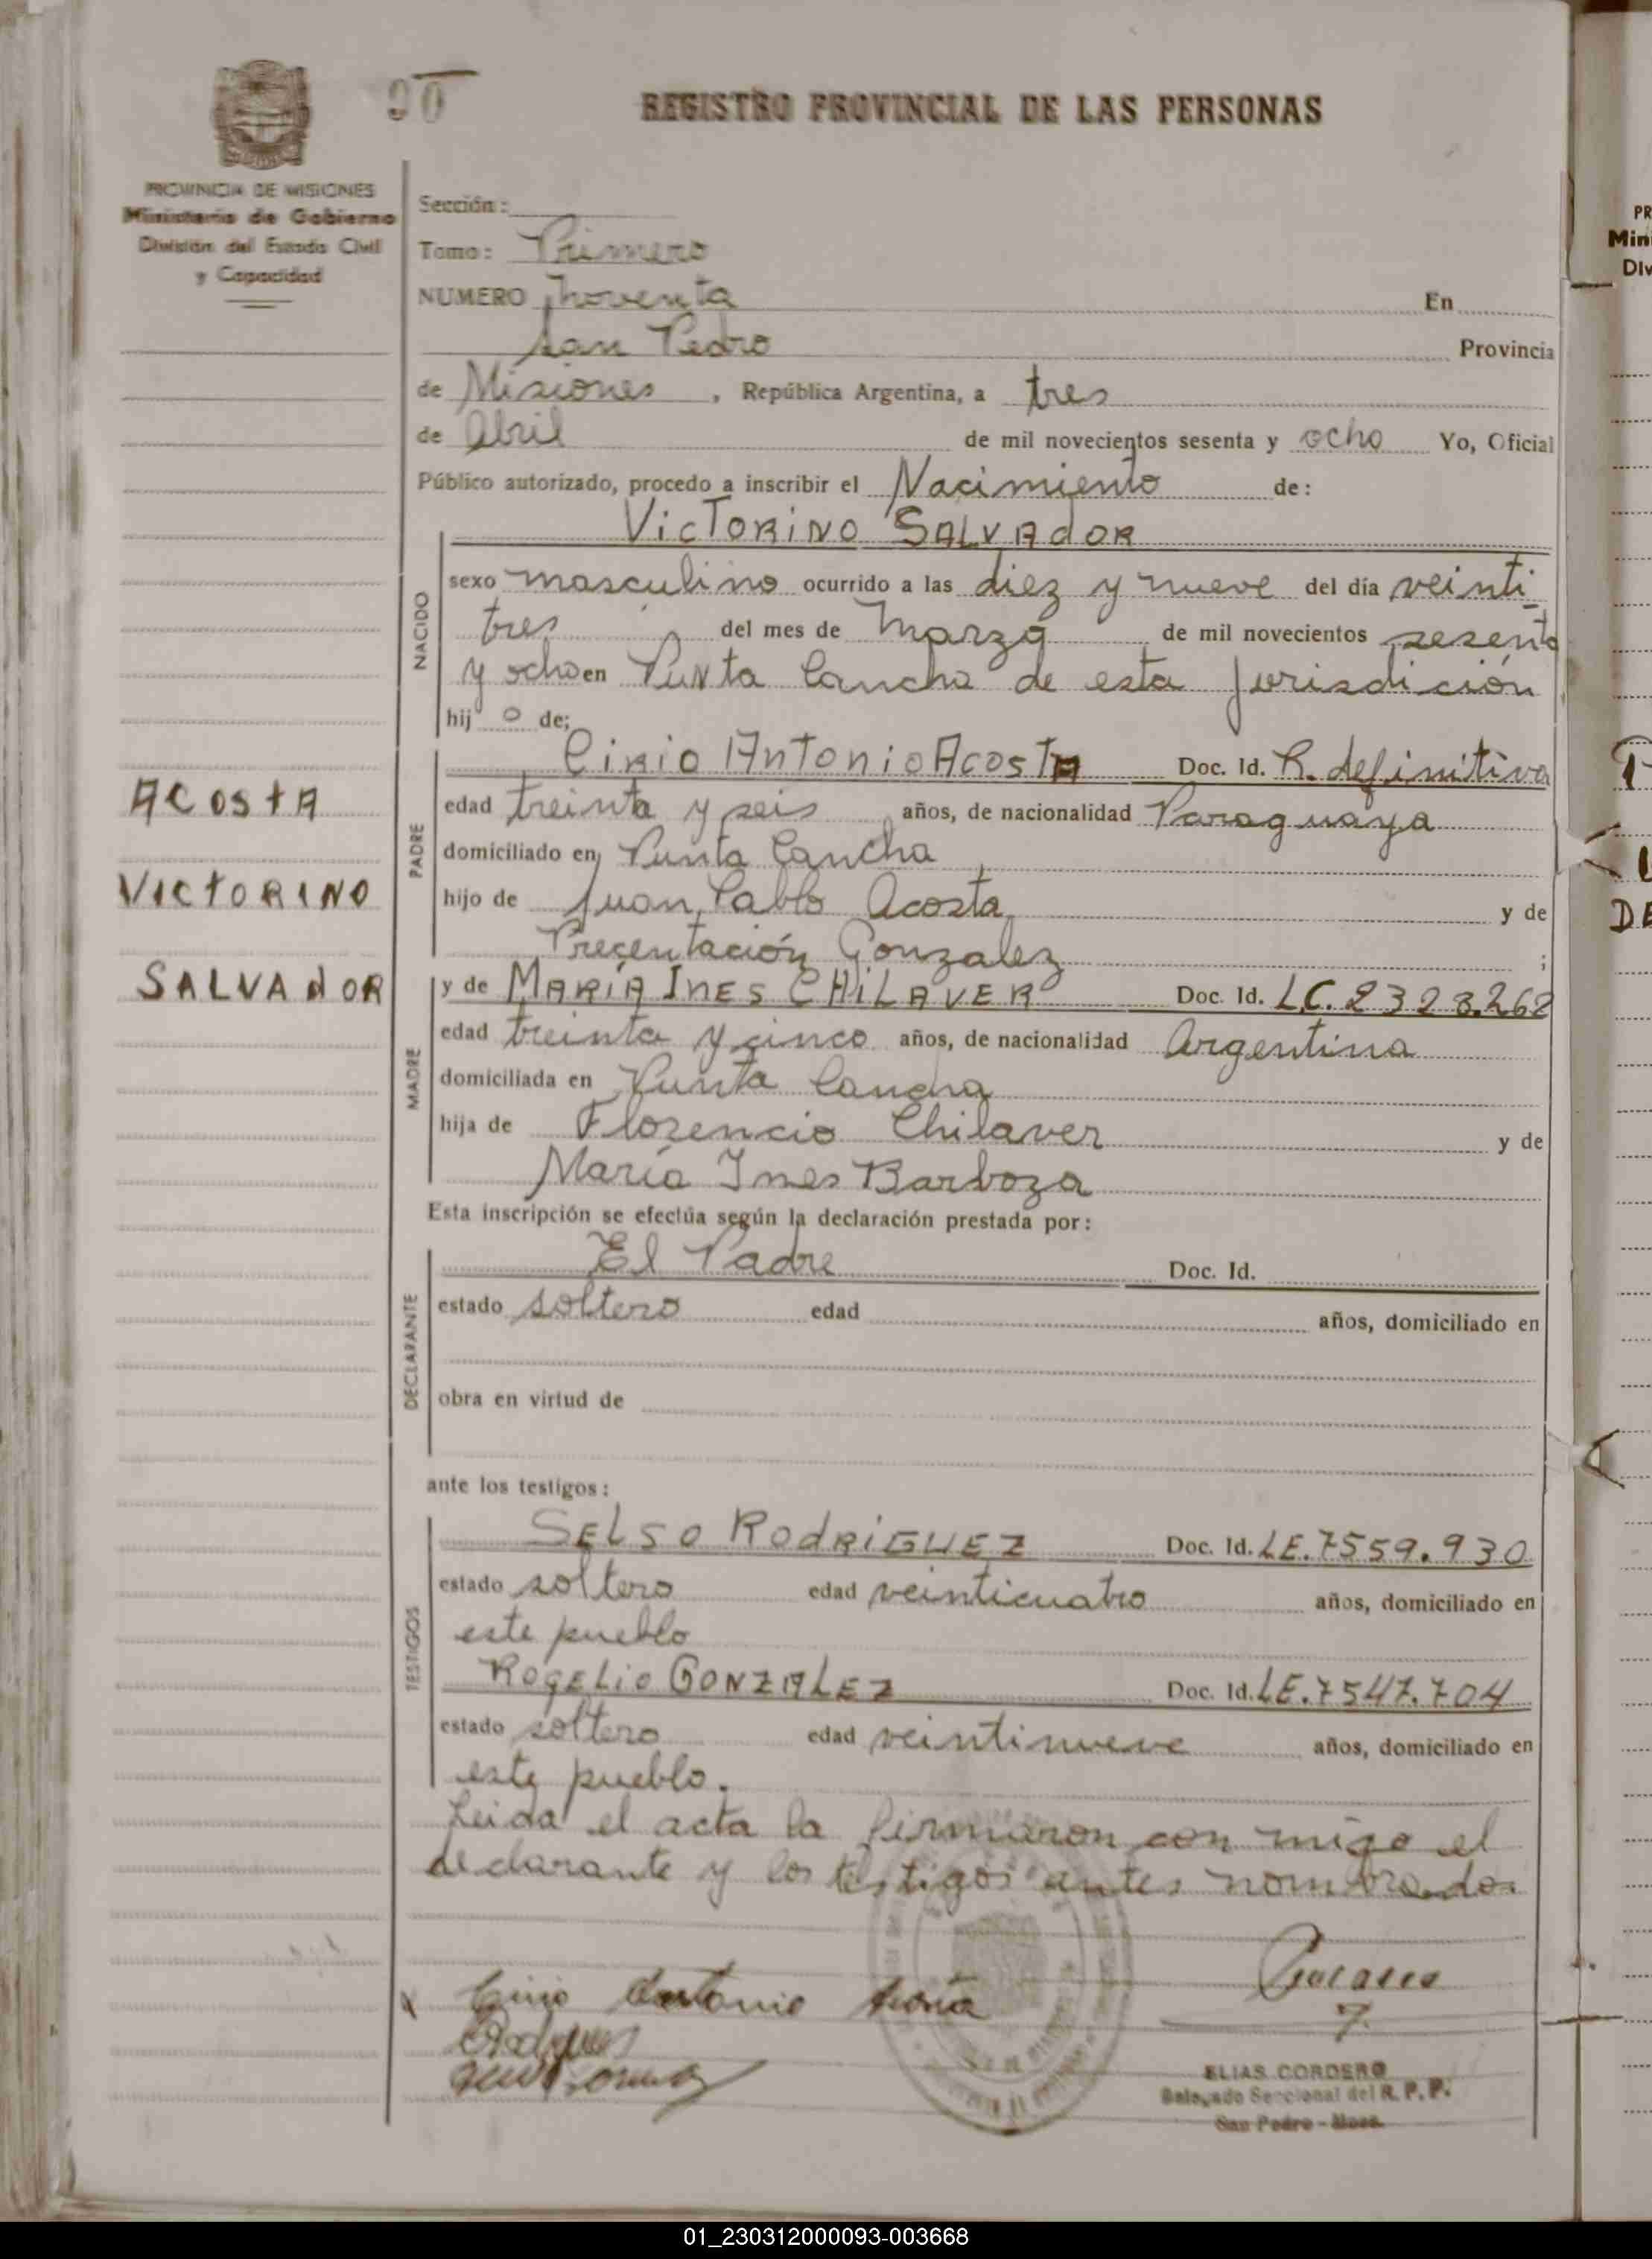 90
REGISTRO PROVINCIAL DE LAS PERSONAS
PROVINCIA DE MISIONES
Ministerio de Gobierno
División del Estado Civil
y Capacidad
Sección:
Tomo: Primero
NUMERO noventa En
San Pedro Provincia
de Misiones, República Argentina, a tres
de Abril de mil novecientos sesenta y ocho Yo, Oficial
Público autorizado, procedo a inscribir el Nacimiento de:
VicTORiNO SALVAdOR
NACIDO
sexo masculino ocurrido a las diez y nueve del día veinti
tres del mes de Marzo de mil novecientos sesenta
y ocho en Punta Cancha de esta jurisdición
hijo de;
PADRE
Cirio Antonio Acosta Doc. Id. R. definitiva
edad treinta y seis años, de nacionalidad Paraguaya
domiciliado en Punta Cancha
hijo de Juan Pablo Acosta y de
Precentación Gonzalez ;
ACOSTA
VICTORINO
SALVAdOR
MADRE
y de MARíA INES CHiLAVER Doc. Id. LC. 2328.262
edad treinta y cinco años, de nacionalidad Argentina
domiciliada en Punta Cancha
hija de Florencio Chilaver y de
María Ines Barboza
Esta inscripción se efectúa según la declaración prestada por:
DECLARANTE
El Padre Doc. Id.
estado soltero edad años, domiciliado en
obra en virtud de
ante los testigos:
TESTIGOS
SELSO RodRiGUEZ Doc. Id. LE. 7559.930
estado soltero edad veinticuatro años, domiciliado en
este pueblo
ROGELio GONZALEZ Doc. Id. LE. 7547.704
estado soltero edad veintinueve años, domiciliado en
este pueblo.
Leida el acta la firmaron con migo el
declarante y los testigos antes nombrados
x Cirio Antonio Acosta
ELIAS CORDERO
Delegado Seccional del R. P. P.
San Pedro - Mnes.
PR
Min
Div
DE
01_230312000093-003668